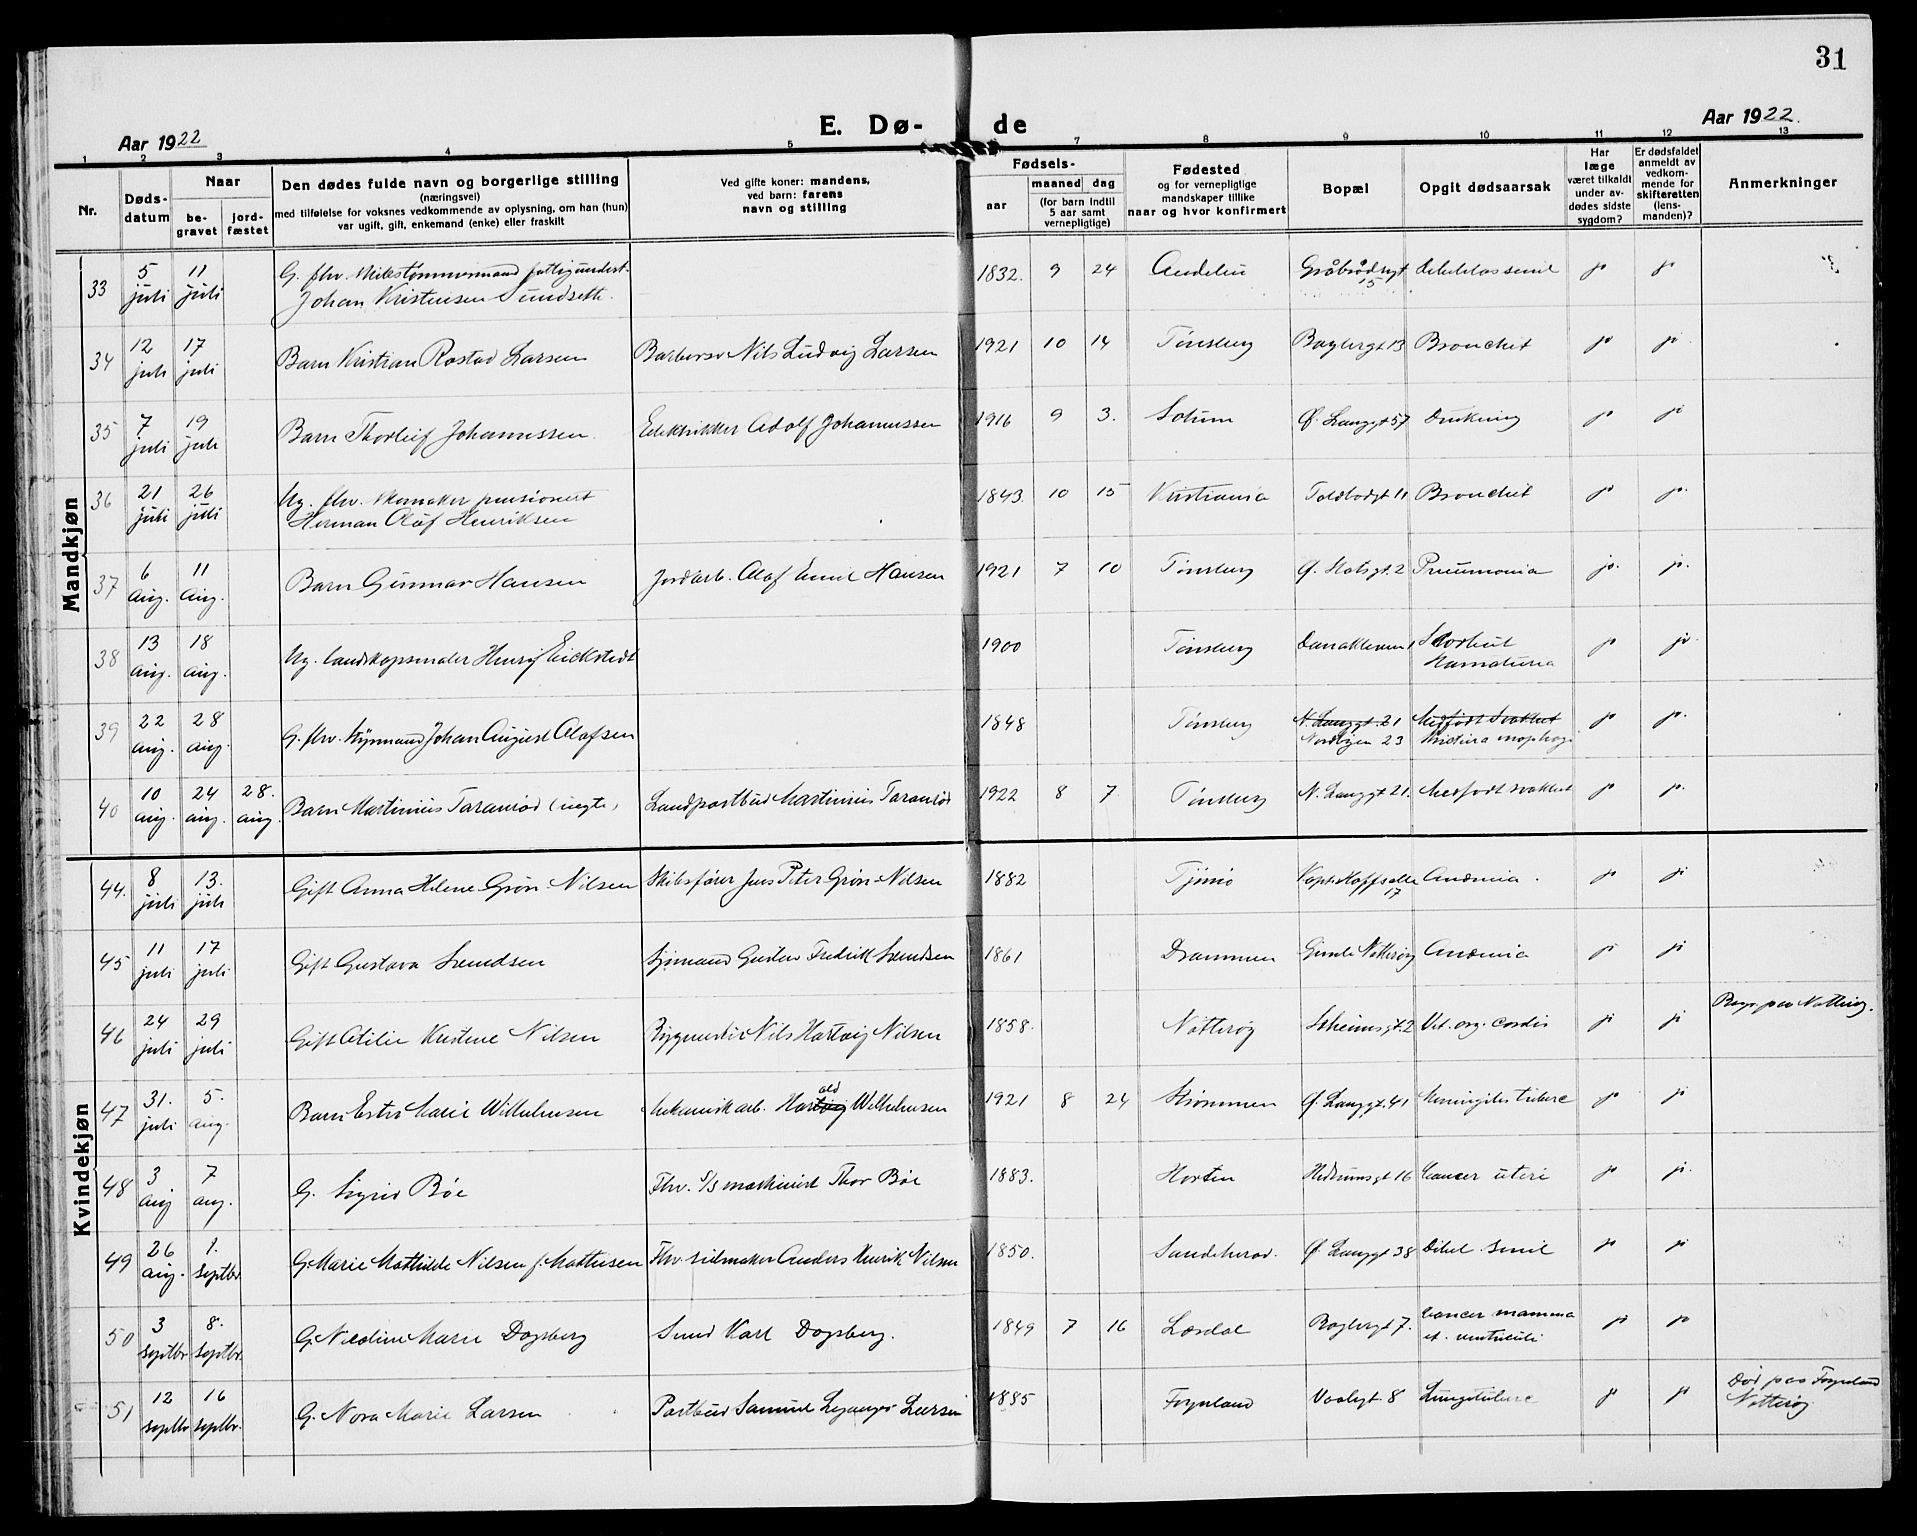 31
Aar 1922
E. Dø-
de
Aar 1922.
1 2 3 4 5 7 8 9 10 11 12 13
Nr.
Døds-
datum
Naar
be-
gravet
jord-
fæstet
Den dødes fulde navn og borgerlige stilling
(næringsvei)
med tilføielse for voksnes vedkommende av oplysning, om han (hun)
var ugift, gift, enkemand (enke) eller fraskilt
Ved gifte koner: mandens,
ved barn: farens
navn og stilling
Fødsels-
aar
maaned dag
(for barn indtil
5 aar samt
vernepligtige)
Fødested
og for vernepligtige
mandskaper tillike
naar og hvor konfirmert
Bopæl
Opgit dødsaarsak
Har
læge
været tilkaldt
under av-
dødes sidste
sygdom?
Er dødsfaldet
anmeldt av
vedkom-
mende for
skifteretten
(lens-
manden)?
Anmerkninger
Mandkjøn
33 5 juli 11 juli G. fhv.
Johan Kristensen Sundseth. 1832. 9 24 15 jo jo
34 12 juli 17 juli Barn Kristian Rostad Larsen Barbersv Nils Ludvig Larsen 1921 10 14 Tønsberg Baglergt 13 Bronchit jo jo
35 7 juli 19 juli Barn Thorleif Johannessen. Elektrikker Adolf Johannessen 1916 9 3. Solum Ø. Langgt 57 Drukning jo jo
36 21 juli 26 juli Ug. fhv. skomaker pensionert
Herman Olaf Henriksen 1843. 10 15 Kristiania Toldbodgt 11 Bronchit jo jo.
37 6 aug. 11 aug. Barn Gunnar Hansen Jordarb. Olaf Emil Hansen 1921 7 10 Tønsberg Ø. Slotsgt. 2 Pneumonia jo. jo.
38 13 aug. 18 aug. Ug. landskapsmaler Henrif Eickstedt 1900 Tønsberg Danakleven 1 jo jo
39 22 aug. 28 aug. G. fhv. Styrmand Johan August Olafsen 1848 Tønsberg N. Langgt. 21 Medfødt svakhet jo jo.
Nordbyen 23
40 10 aug. 24 aug. 28. aug. Barn Martinius Taranrød (uegte) Landpostbud Martinius Taranrød 1922 8 7 Tønsberg N. Langgt 21. Medfødt svakhet jo jo.
Kvindekjøn
44. 8 juli 13. juli Gift Anna Helene Grøn-Nilsen Skibsfører Jens Peter Grøn-Nilsen 1882 Tjømø 17 Anæmia. jo jo
45 11 juli 17 juli Gift Gustava Svendsen Sjømand Gustav Fredrik Svendsen 1861 Drammen Gimle Nøtterøy Anæmia jo jo
46 24 juli 29 juli Gift Otilie Kristine Nilsen Bygmester Nils Hartvig Nilsen 1858. Nøtterøy Solheimsgt. 2 Vit. org. cordis jo jo Begr. paa Nøtterøy.
47 31. juli 5. aug. Barn Ester Marie Wilhelmsen Mekanisk arb. Hartvig ald Wilhelmsen 1921 8 24 Strømmen Ø. Langgt. 41 Meningites tuberc jo jo
48 3 aug 7 aug. G. Sigrid Bøe Fhv. S/S maskinist Thor Bøe 1883. Horten 16 Cancer uteri jo jo.
49 26 aug. 1. septbr G. Marie Mathilde Nilsen f. Mathisen Fhv. seilmaker Anders Henrik Nilsen 1850. Sandeherad. Ø. Langgt 38 Debil. senil jo jo
50 3 septbr 8. septbr. G. Nicoline Marie Dogsberg Smed Karl Dogsberg. 1849 7 16 Lærdal Baglergt 7. Cancer mamma
et. ventriculi jo jo
51 12 septbr 16 septbr. G. Nora Marie Larsen Postbud Samuel Leganger Larsen 1885 Fogneland 8 Lungetuberc jo jo Død paa Fogneland
Nøtterøy